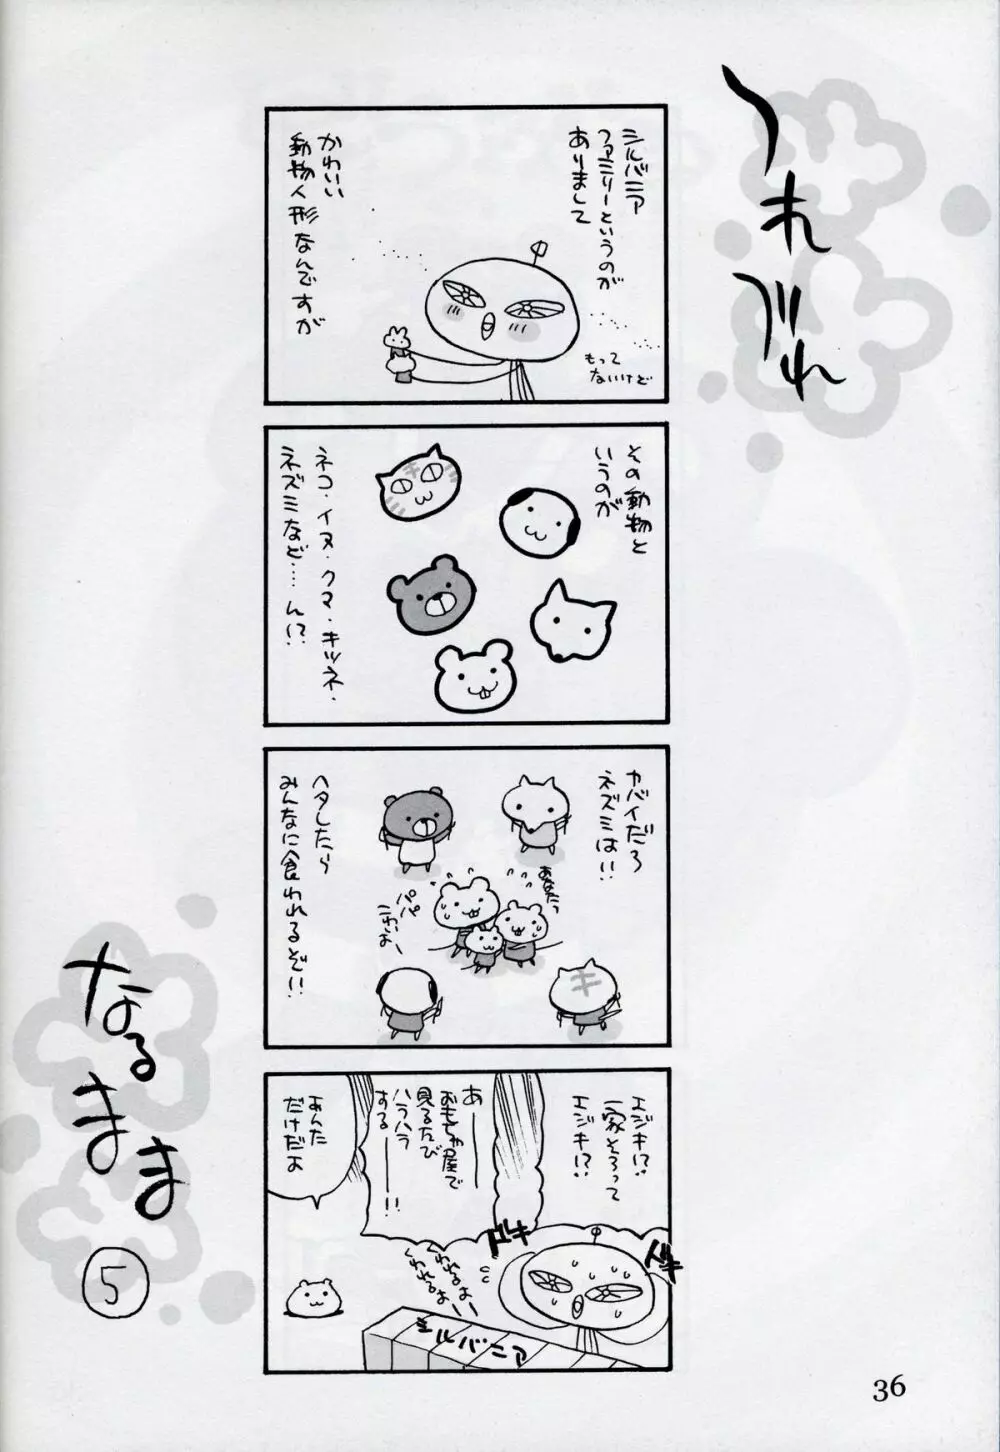 つれづれ
なるまま
5
シルバニア
ファミリーというのが
ありまして
かわいい
動物人形なんですが
もって
ないけど
その動物と
いうのが
ネコ・イヌ・クマ・キツネ・
ネズミなど……ん!?
ヤバイだろ
ネズミは!!
あなたっ
パパ
こわいよー
ヘタしたら
みんなに食われるぞ!!
エジキ!?
一家そろって
エジキ!?
あー
おもちゃ屋で
見るたび
ハラハラ
するー!!
あんた
だけだよ
ドキ
ドキ
くわれるよー
くわれるよー
シルバニア
36